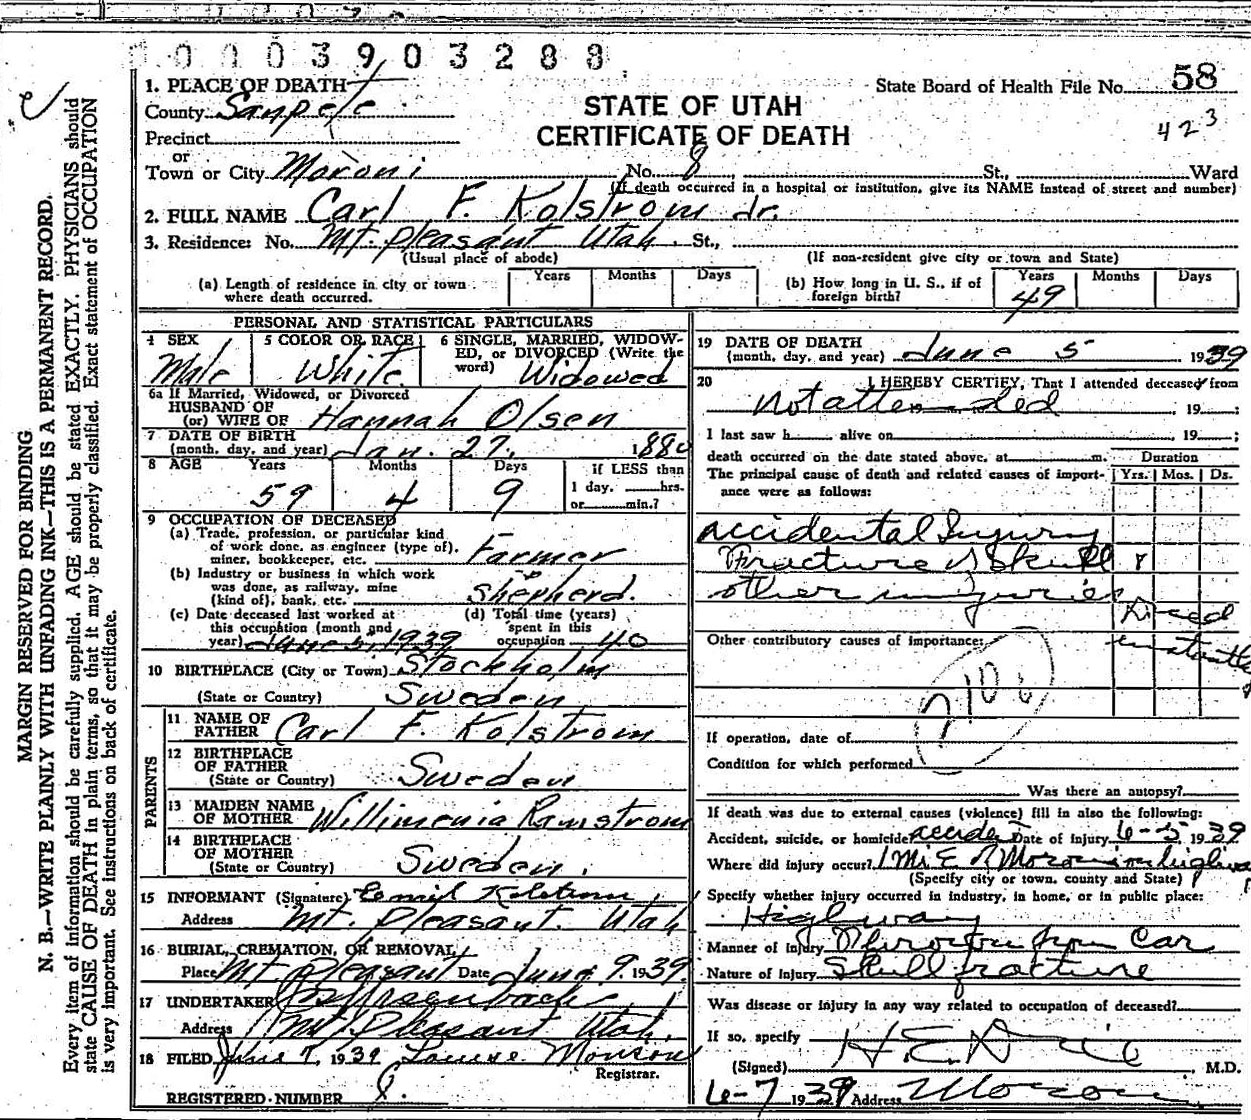 00003903288
1. PLACE OF DEATH
County Sanpete
Precinct
or
Town or City Moroni No. 8, St., Ward
(If death occurred in a hospital or institution, give its NAME instead of street and number)
State Board of Health File No. 58
423
STATE OF UTAH
CERTIFICATE OF DEATH
2. FULL NAME Carl F. Kolstrom Jr.
3. Residence: No. Mt. Pleasant Utah. St.,
(Usual place of abode) (If non-resident give city or town and State)
(a) Length of residence in city or town where death occurred. Years Months Days
(b) How long in U. S., if of foreign birth? Years 49 Months Days
PERSONAL AND STATISTICAL PARTICULARS
4 SEX Male
5 COLOR OR RACE White
6 SINGLE, MARRIED, WIDOWED, or DIVORCED (Write the word) Widowed
6a If Married, Widowed, or Divorced
HUSBAND OF
(or) WIFE OF Hannah Olsen
7 DATE OF BIRTH
(month, day, and year) Jan. 27. 1880
8 AGE Years 59 Months 4 Days 9 if LESS than 1 day, hrs. or min.?
9 OCCUPATION OF DECEASED
(a) Trade, profession, or particular kind of work done, as engineer (type of), miner, bookkeeper, etc. Farmer
(b) Industry or business in which work was done, as railway, mine (kind of), bank, etc. Shepherd.
(c) Date deceased last worked at this occupation (month and year) June 5, 1939
(d) Total time (years) spent in this occupation 40
10 BIRTHPLACE (City or Town) Stockholm
(State or Country) Sweden
PARENTS
11 NAME OF FATHER Carl F. Kolstrom
12 BIRTHPLACE OF FATHER
(State or Country) Sweden
13 MAIDEN NAME OF MOTHER Willimenia Ramstrom
14 BIRTHPLACE OF MOTHER
(State or Country) Sweden.
15 INFORMANT (Signature) Emil Kolstrom
Address Mt. Pleasant. Utah
16 BURIAL, CREMATION, OR REMOVAL
Place Mt Pleasant Date June 9. 1939
17 UNDERTAKER
Address Mt Pleasant Utah.
18 FILED June 7, 1939 Louise Monson
Registrar.
REGISTERED NUMBER 8.
19 DATE OF DEATH
(month, day, and year) June 5 1939
20 I HEREBY CERTIFY, That I attended deceased from
not attended 19 ;
I last saw h alive on 19 ;
death occurred on the date stated above, at m.
Duration
The principal cause of death and related causes of importance were as follows: Yrs. Mos. Ds.
accidental Injury
Fracture of Skull &
other injuries
Died
instantly
Other contributory causes of importance:
210
If operation, date of
Condition for which performed
Was there an autopsy?
If death was due to external causes (violence) fill in also the following:
Accident, suicide, or homicide? accident Date of injury 6-5 1939
Where did injury occur? 1 Mi E of Moroni on highway
(Specify city or town, county and State)
Specify whether injury occurred in industry, in home, or in public place:
Highway
Manner of injury Thrown from Car
Nature of injury Skull fracture
Was disease or injury in any way related to occupation of deceased?
If so, specify
(Signed) M.D.
6-7 1939 Address Moroni
MARGIN RESERVED FOR BINDING
N. B.—WRITE PLAINLY WITH UNFADING INK—THIS IS A PERMANENT RECORD.
Every item of information should be carefully supplied. AGE should be stated EXACTLY. PHYSICIANS should
state CAUSE OF DEATH in plain terms, so that it may be properly classified. Exact statement of OCCUPATION
is very important. See instructions on back of certificate.